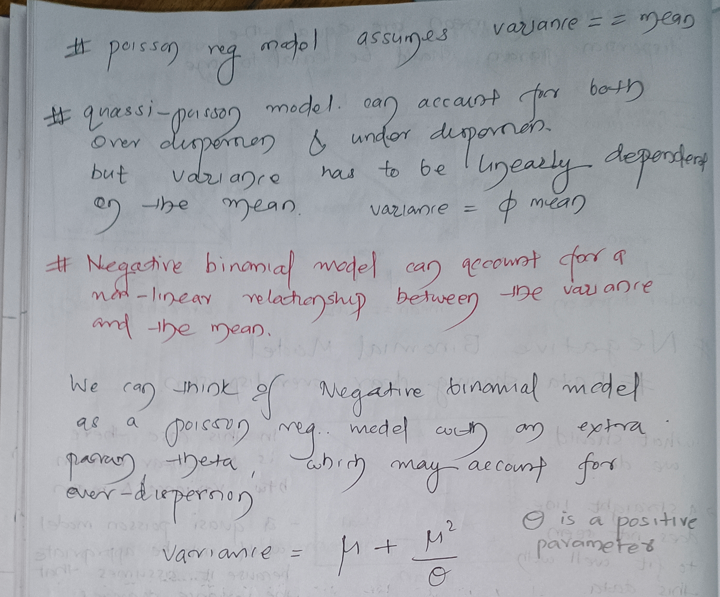 # poisson reg model assumes variance == mean
# quassi-poisson model. can account for both
over dispersion & under dispersion.
but variance has to be linearly dependent
on the mean. variance = ϕ mean
# Negative binomial model can account for a
non-linear relationship between the variance
and the mean.
We can think of Negative binomial model
as a poisson reg.. model with an extra
param theta, which may account for
over-dispersion
variance = μ + μ²/θ
θ is a positive
parameter